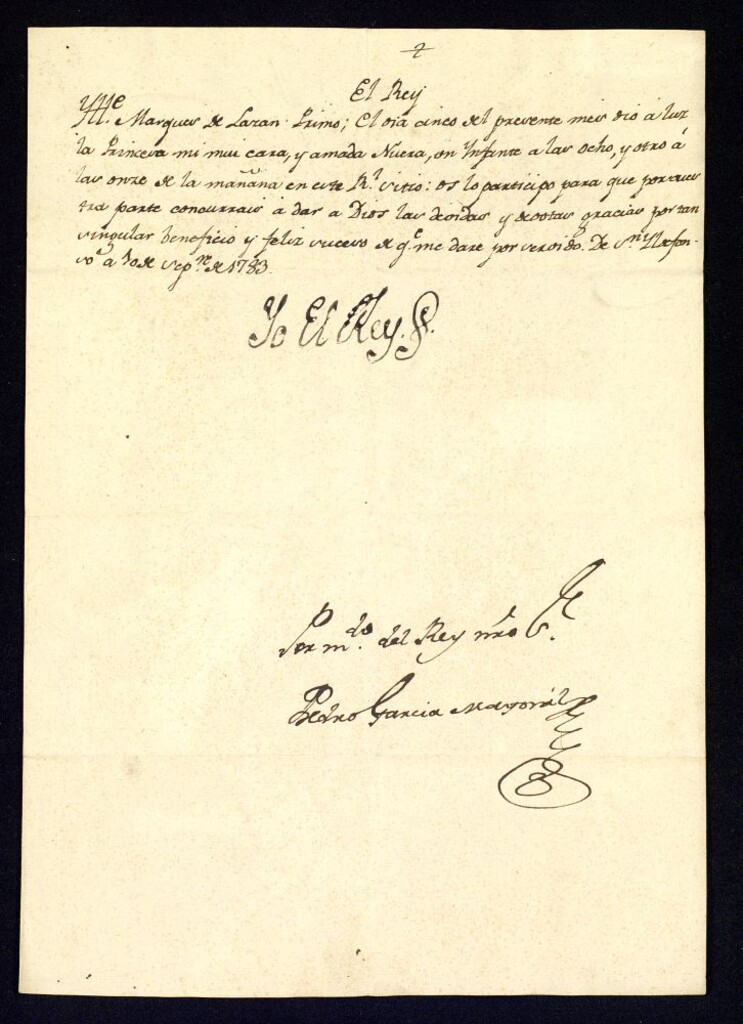 El Rey
Ylle. Marques de Lazan Primo; El dia cinco del presente mes dio à luz
la Princesa mi mui cara, y amada Nuera, un Infante a las ocho, y otro à
las onze de la mañana en este Rl. sitio: os lo participo para que por vues
tra parte concurrais à dar a Dios las devidas y devotas gracias por tan
singular beneficio y feliz suceso de qe. me dare por servido. De Sn. Ildefon-
so a 10 de Sepre. de 1783.
Yo El Rey.
Por mdo. del Rey nro Sr.
Pedro Garcia Mayoral